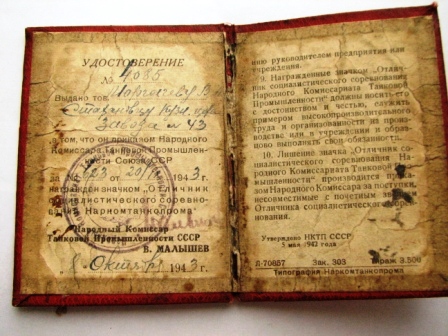 УДОСТОВЕРЕНИЕ
№ 4085
Выдано тов.
Завода № 43
в том, что он приказом Народного
Комиссара Танковой Промышлен-
ности Союза ССР
за № 194 3 г.
награжден значком „Отличник
социалистического соревно-
вания Наркомтанкопрома"
Народный Комиссар
Танковой Промышленности СССР
В. МАЛЫШЕВ
" Октября 194 3 г.
нию руководителем предприятия или
учреждения.
9. Награжденные значком „Отлич-
ник социалистического соревнования
Народного Комиссариата Танковой
Промышленности" должны носить его
с достоинством и честью, служить
примером высокопроизводительного
труда и организованности на произ-
водстве или в учреждении и образцово
выполнять свои обязанности.
10. Лишение значка „Отличник со-
циалистического соревнования На-
родного Комиссариата Танковой Про-
мышленности" производится приказом
Народного Комиссара за поступки,
несовместимые с почетным званием
Отличника социалистического сорев-
нования.
Утверждено НКТП СССР
3 мая 1943 года
Л-70857 Зак. 303 Тираж 3.500
Типография Наркомтанкопрома